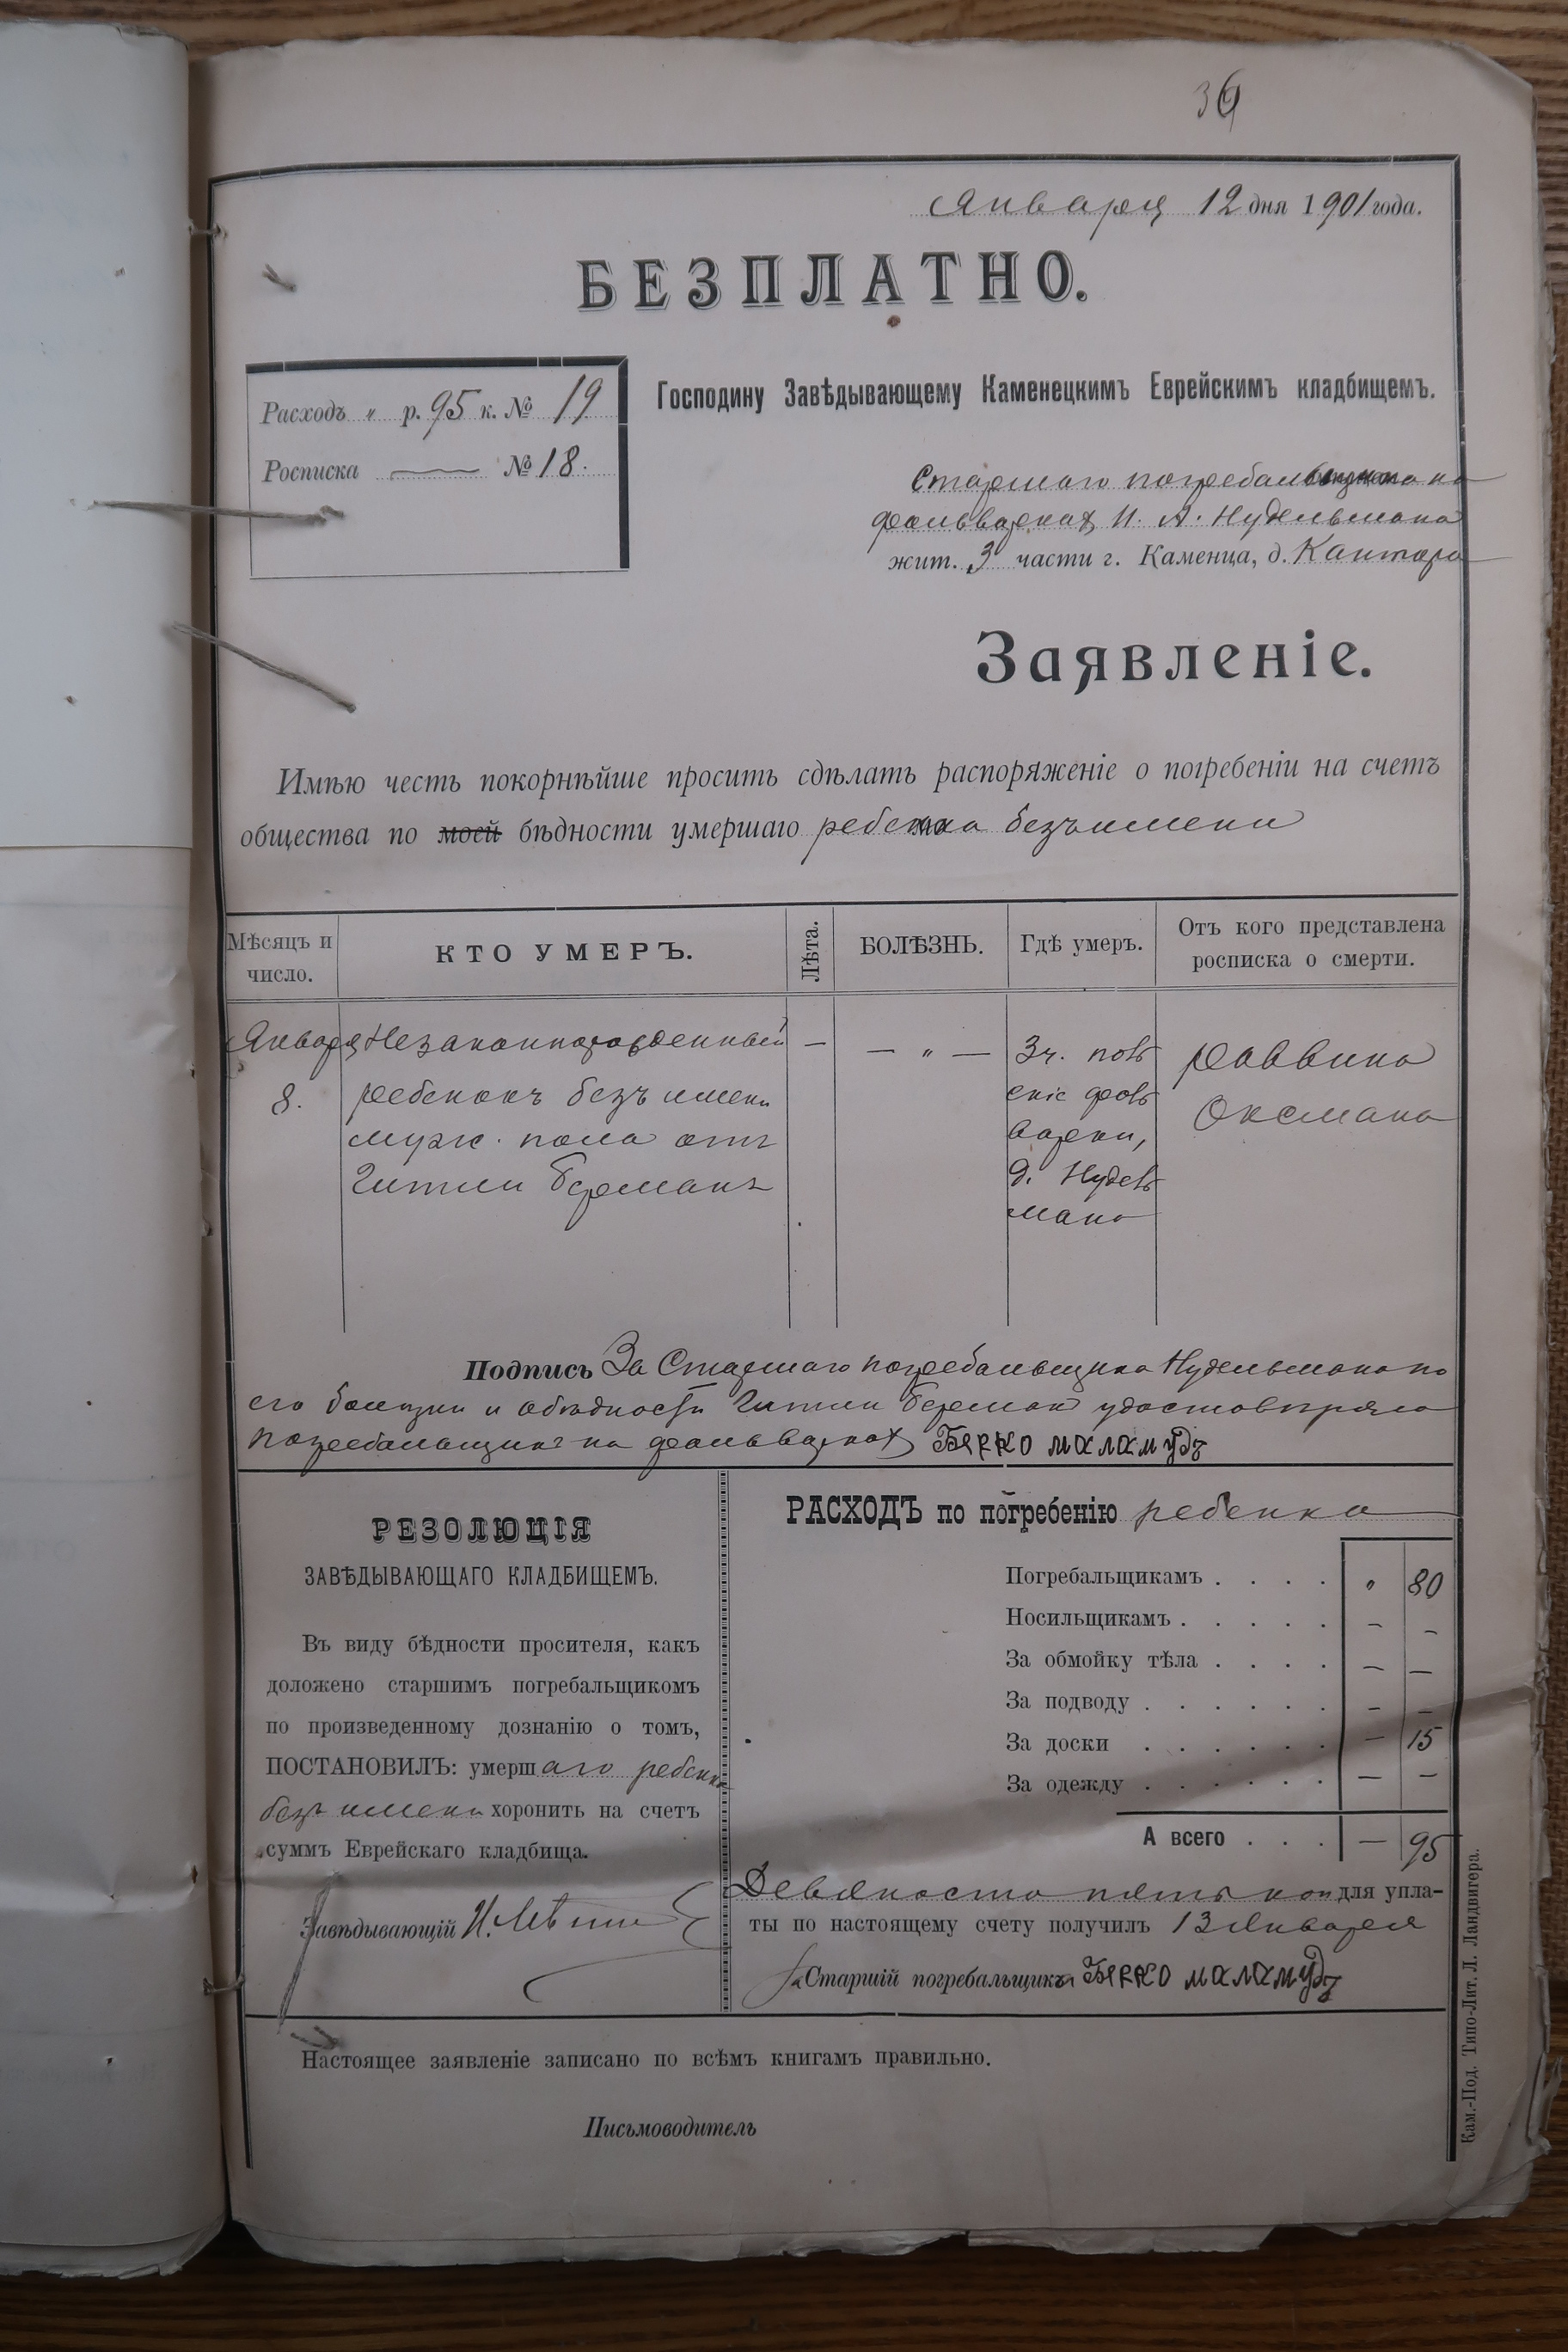 39
Января 12 дня 1901 года.
БЕЗПЛАТНО.
Расходъ „ р. 95 к. № 19
Росписка — № 18.
Господину Завѣдывающему Каменецкимъ Еврейскимъ кладбищемъ.
Старшаго погребальщика на
фольваркахъ И. А. Нудельмана
жит. 3 части г. Каменца, д. Кантора
Заявленіе.
Имѣю честь покорнѣйше просить сдѣлать распоряженіе о погребеніи на счетъ
общества по моей бѣдности умершаго ребенка безъ имени
Мѣсяцъ и число.
КТО УМЕРЪ.
Лѣта.
БОЛѢЗНЬ.
Гдѣ умеръ.
Отъ кого представлена росписка о смерти.
Января Незаконнорожденный — — „ — 3 ч. Раввина
8. ребенокъ безъ имени Оксмана
муж. пола отъ
Гитли Берманъ д. Нудель
мана
Подпись За Старшаго погребальщика Нудельмана по
его болѣзни и о бѣдности Гитли Берман удостовѣряю
погребальщикъ на фольваркахъ Берко маламудъ
РЕЗОЛЮЦІЯ
ЗАВѢДЫВАЮЩАГО КЛАДБИЩЕМЪ.
Въ виду бѣдности просителя, какъ
доложено старшимъ погребальщикомъ
по произведенному дознанію о томъ,
ПОСТАНОВИЛЪ: умершаго ребенка
безъ имени хоронить на счетъ
суммъ Еврейскаго кладбища.
Завѣдывающій
РАСХОДЪ по погребенію ребенка
Погребальщикамъ . . . . „ 80
Носильщикамъ . . . . . – –
За обмойку тѣла . . . . — —
За подводу . . . . . . – –
За доски . . . . . . – 15
За одежду . . . . . . — —
А всего . . . . — 95
Девяносто пять коп для упла-
ты по настоящему счету получилъ 13 Января
За Старшій погребальщика Берко маламудъ
Настоящее заявленіе записано по всѣмъ книгамъ правильно.
Письмоводитель
Кам.-Под. Типо-Лит. Л. Ландвигера.